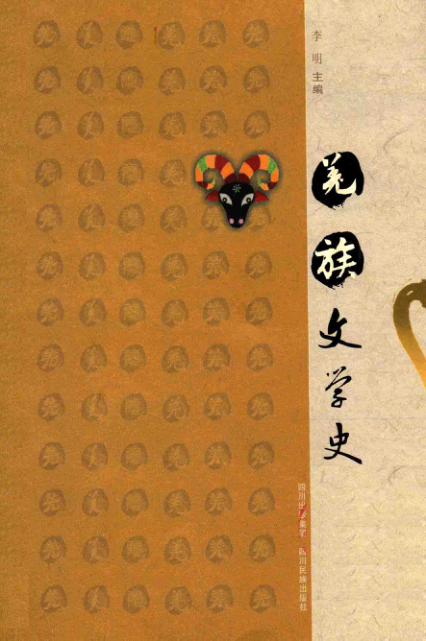 李明 主编
羌族文学史
四川出版集团 四川民族出版社